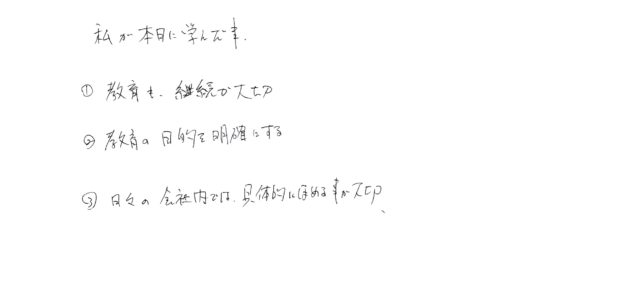 私が本日に学んだ事.
① 教育も、継続が大切
② 教育の目的を明確にする
③ 日々の会社内では、具体的にほめる事が大切、